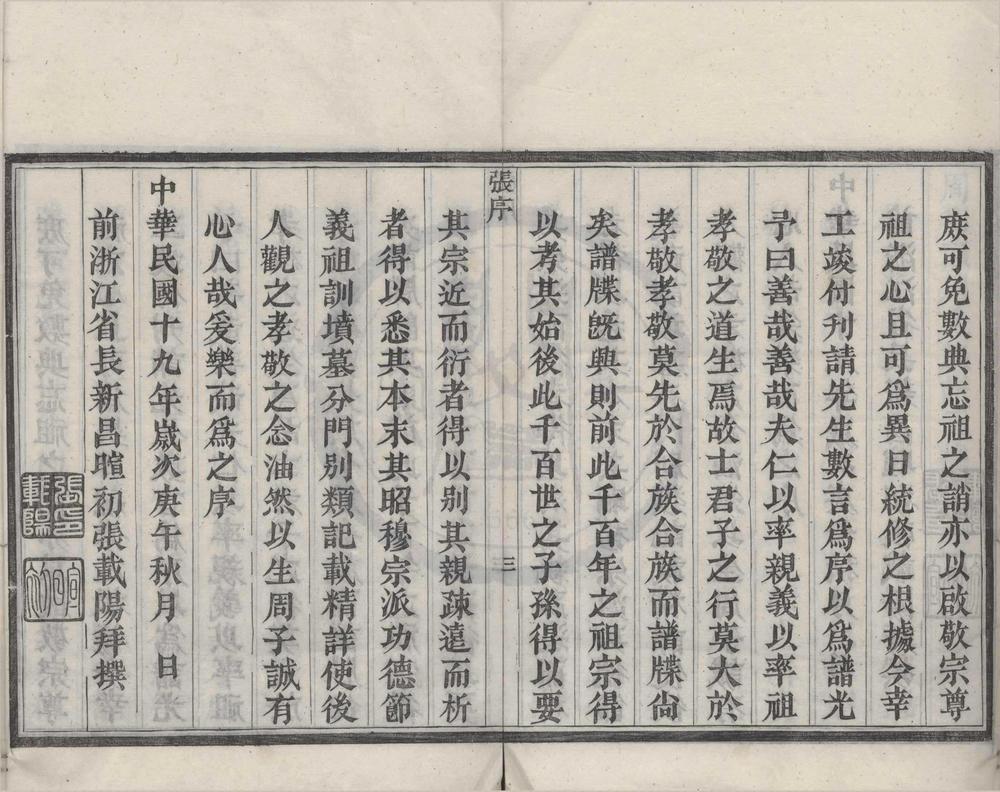 庶可免數典忘祖之誚亦以啟敬宗尊
祖之心且可爲異日統修之根據今幸
工竣付刊請先生數言爲序以爲譜光
予曰善哉善哉夫仁以率親義以率祖
孝敬之道生焉故士君子之行莫大於
孝敬孝敬莫先於合族合族而譜牒尙
矣譜牒旣興則前此千百年之祖宗得
以考其始後此千百世之子孫得以要
張序
三
其宗近而衍者得以别其親疎遠而析
者得以悉其本末其昭穆宗派功德節
義祖訓墳墓分門别類記載精詳使後
人觀之孝敬之念油然以生周子誠有
心人哉爰樂而爲之序
中華民國十九年嵗次庚午秋月 日
前浙江省長新昌暄初張載陽拜撰
張載陽印
暄初